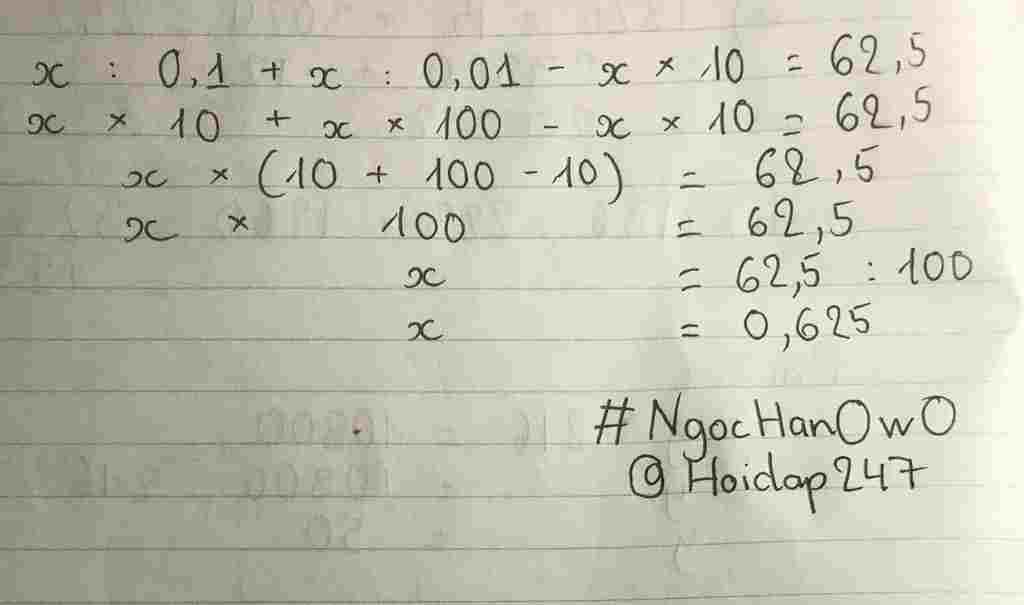 x : 0,1 + x : 0,01 - x × 10 = 62,5
x × 10 + x × 100 - x × 10 = 62,5
x × (10 + 100 - 10) = 62,5
x × 100 = 62,5
x = 62,5 : 100
x = 0,625
#NgocHanOwO
@Hoidap247